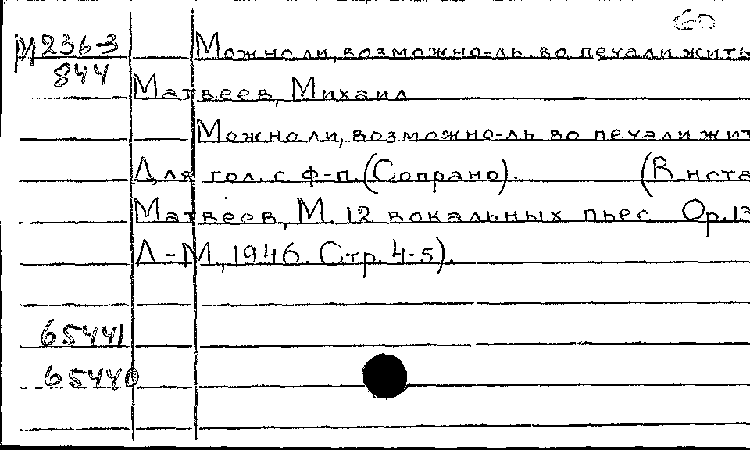 60
М 236-3 Можно ли, возможно-ль во печали жить
844 Матвеев, Михаил
Можно ли, возможно-ль во печали жит
Для гол. с ф-п. (Сопрано). (В нота
Матвеев, М. 12 вокальных пьес Ор. 13
Л-М, 1946. Стр. 4-5).
65441
65440